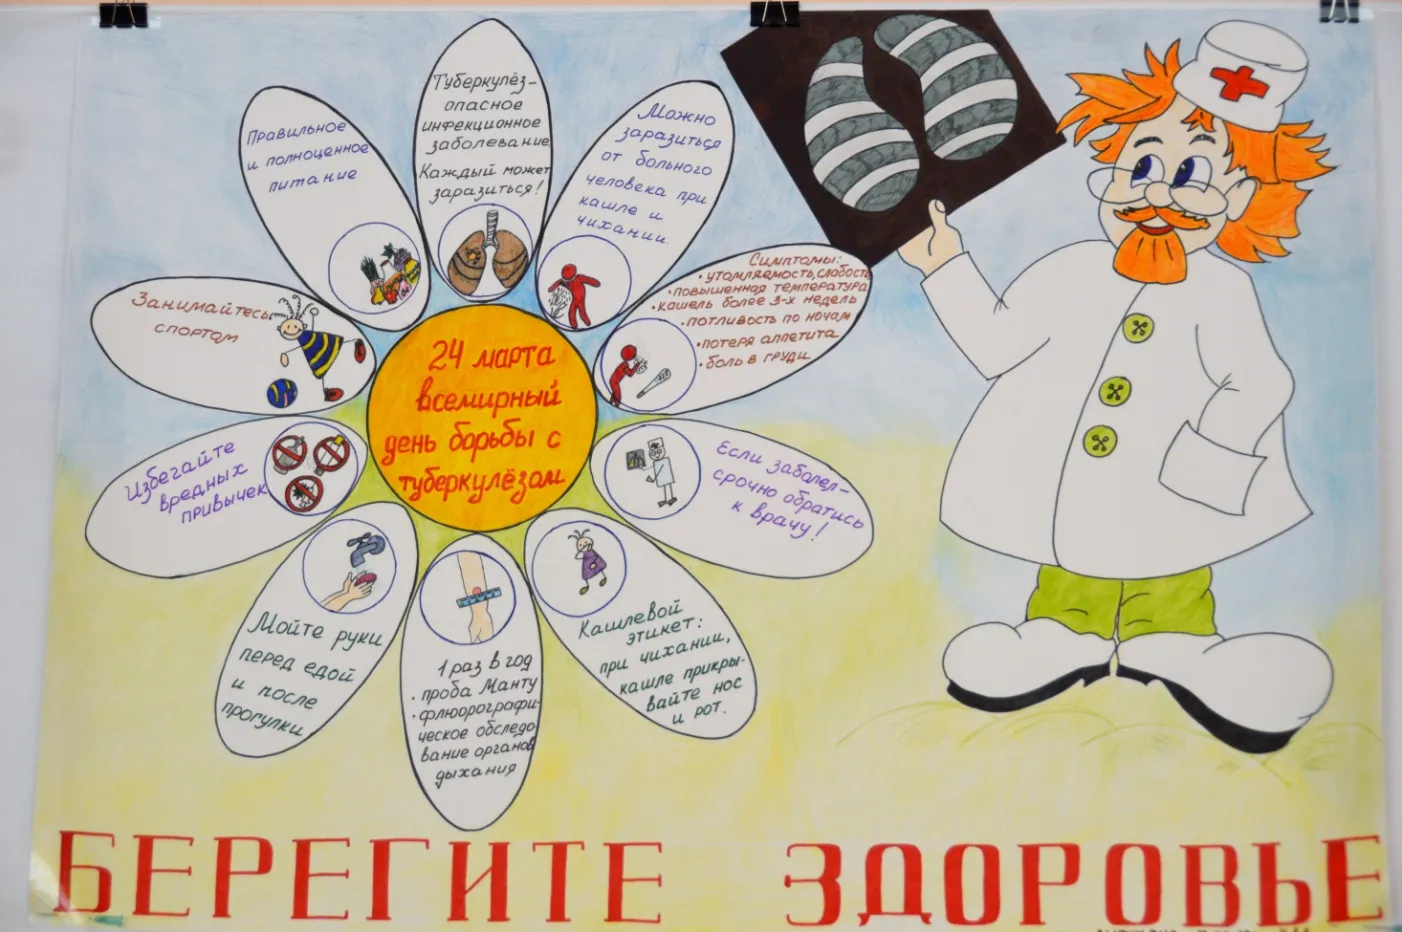 24 марта
всемирный
день борьбы с
туберкулёзом
Туберкулёз-
опасное
инфекционное
заболевание.
Каждый может
заразиться!
Можно
заразиться
от больного
человека при
кашле и
чихании.
Симптомы:
• утомляемость, слабость
• повышенная температура
• кашель более 3-х недель
• потливость по ночам
• потеря аппетита
• боль в груди
Если заболел-
срочно обратись
к врачу!
Кашлевой
этикет:
при чихании,
кашле прикры-
вайте нос
и рот.
1 раз в год
• проба Манту
• флюорографи-
ческое обследо
вание органов
дыхания
Мойте руки
перед едой
и после
прогулки
Избегайте
вредных
привычек
Занимайтесь
спортом
Правильное
и полноценное
питание
БЕРЕГИТЕ ЗДОРОВЬЕ